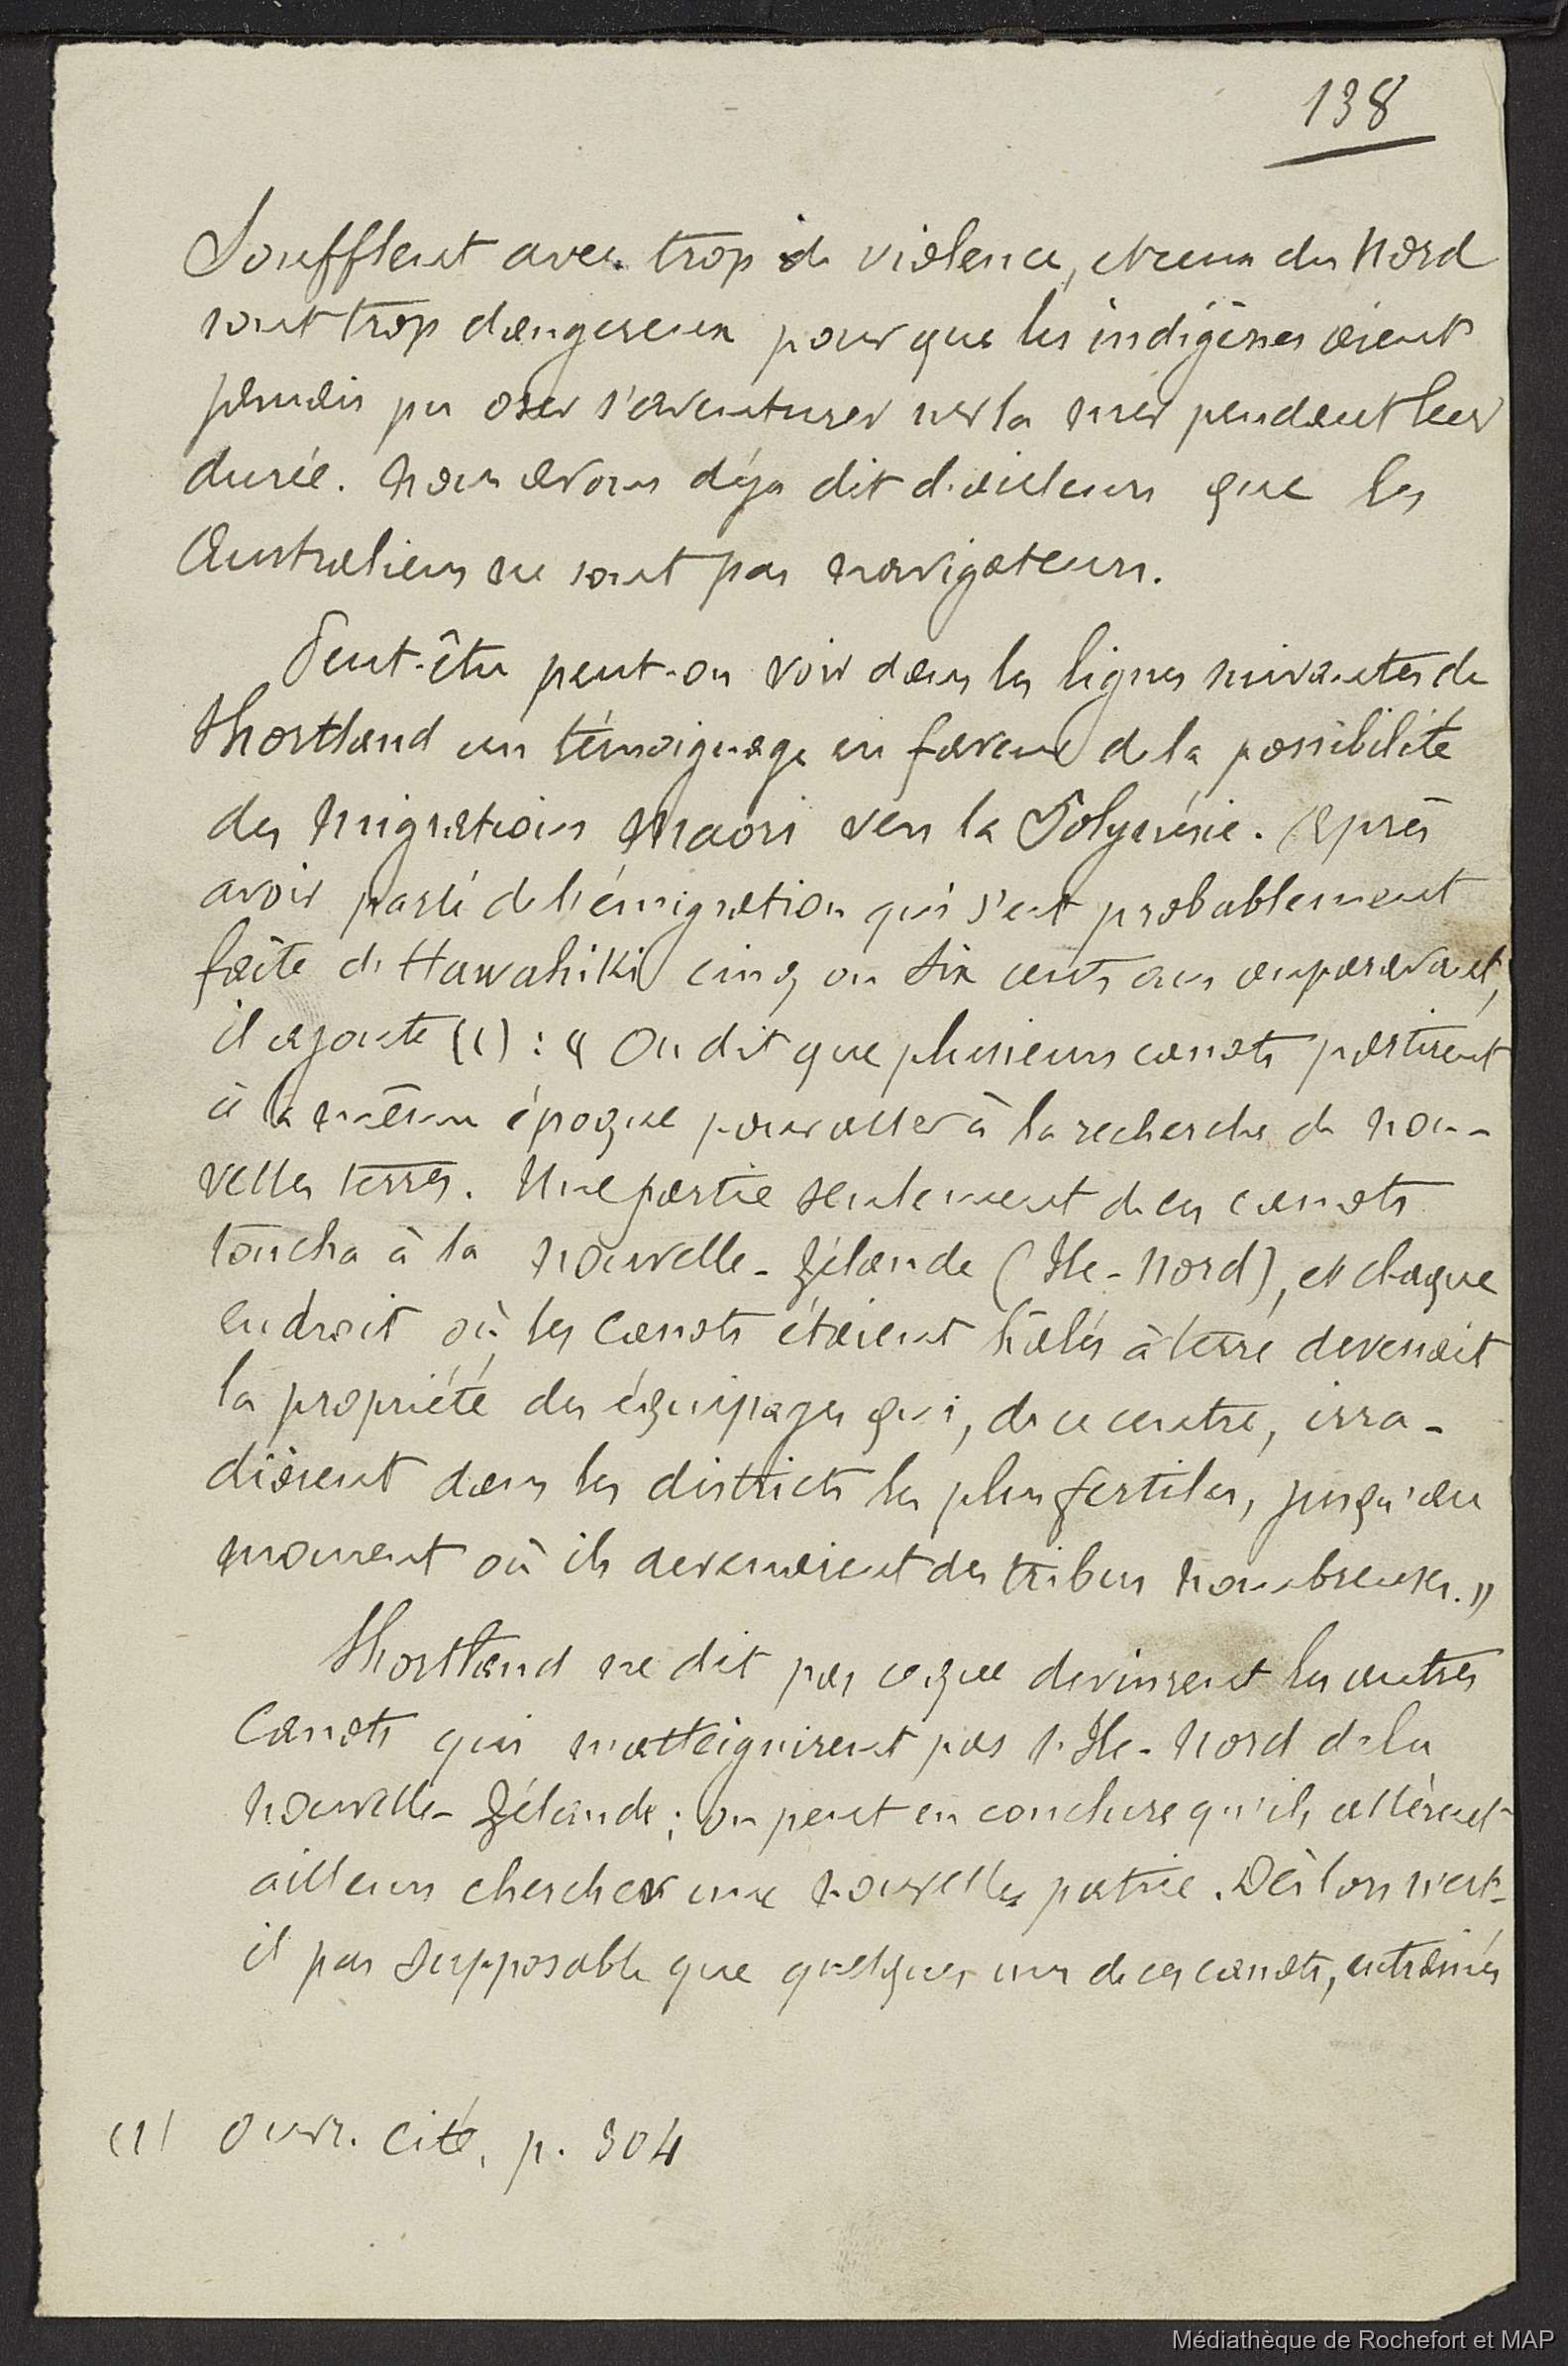 138
Soufflent avec trop de violence, et ceux du Nord
sont trop dangereux pour que les indigènes aient
jamais pu oser s'aventurer sur la mer pendant leur
durée. Nous avons déja dit d'ailleurs que les
Australiens ne sont pas navigateurs.
Peut-être peut-on voir dans les lignes suivantes de
Shortland un témoignage en faveur de la possibilité
des migrations Maori vers la Polynésie. Après
avoir parlé de l'émigration qui s'est probablement
faite d'Hawahiki cinq ou six cents ans auparavant,
il ajoute (1) : « On dit que plusieurs canots partirent
à la même époque pour aller à la recherche de nou-
velles terres. Une partie seulement de ces canots
toucha à la Nouvelle-Zélande (Ile-Nord), et chaque
endroit où les canots étaient hâlés à terre devenait
la propriété des équipages qui, de ce centre, irra-
dièrent dans les districts les plus fertiles, jusqu'au
moment où ils devenaient des tribus nombreuses. »
Shortland ne dit pas ce que devinrent les autres
canots qui n'atteignirent pas l'Ile-Nord de la
Nouvelle-Zélande ; on peut en conclure qu'ils allèrent
ailleurs chercher une nouvelle patrie. Dès lors n'est-
il pas supposable que quelques uns de ces canots, entraînés
(1) Ouvr. cité, p. 304
Médiathèque de Rochefort et MAP